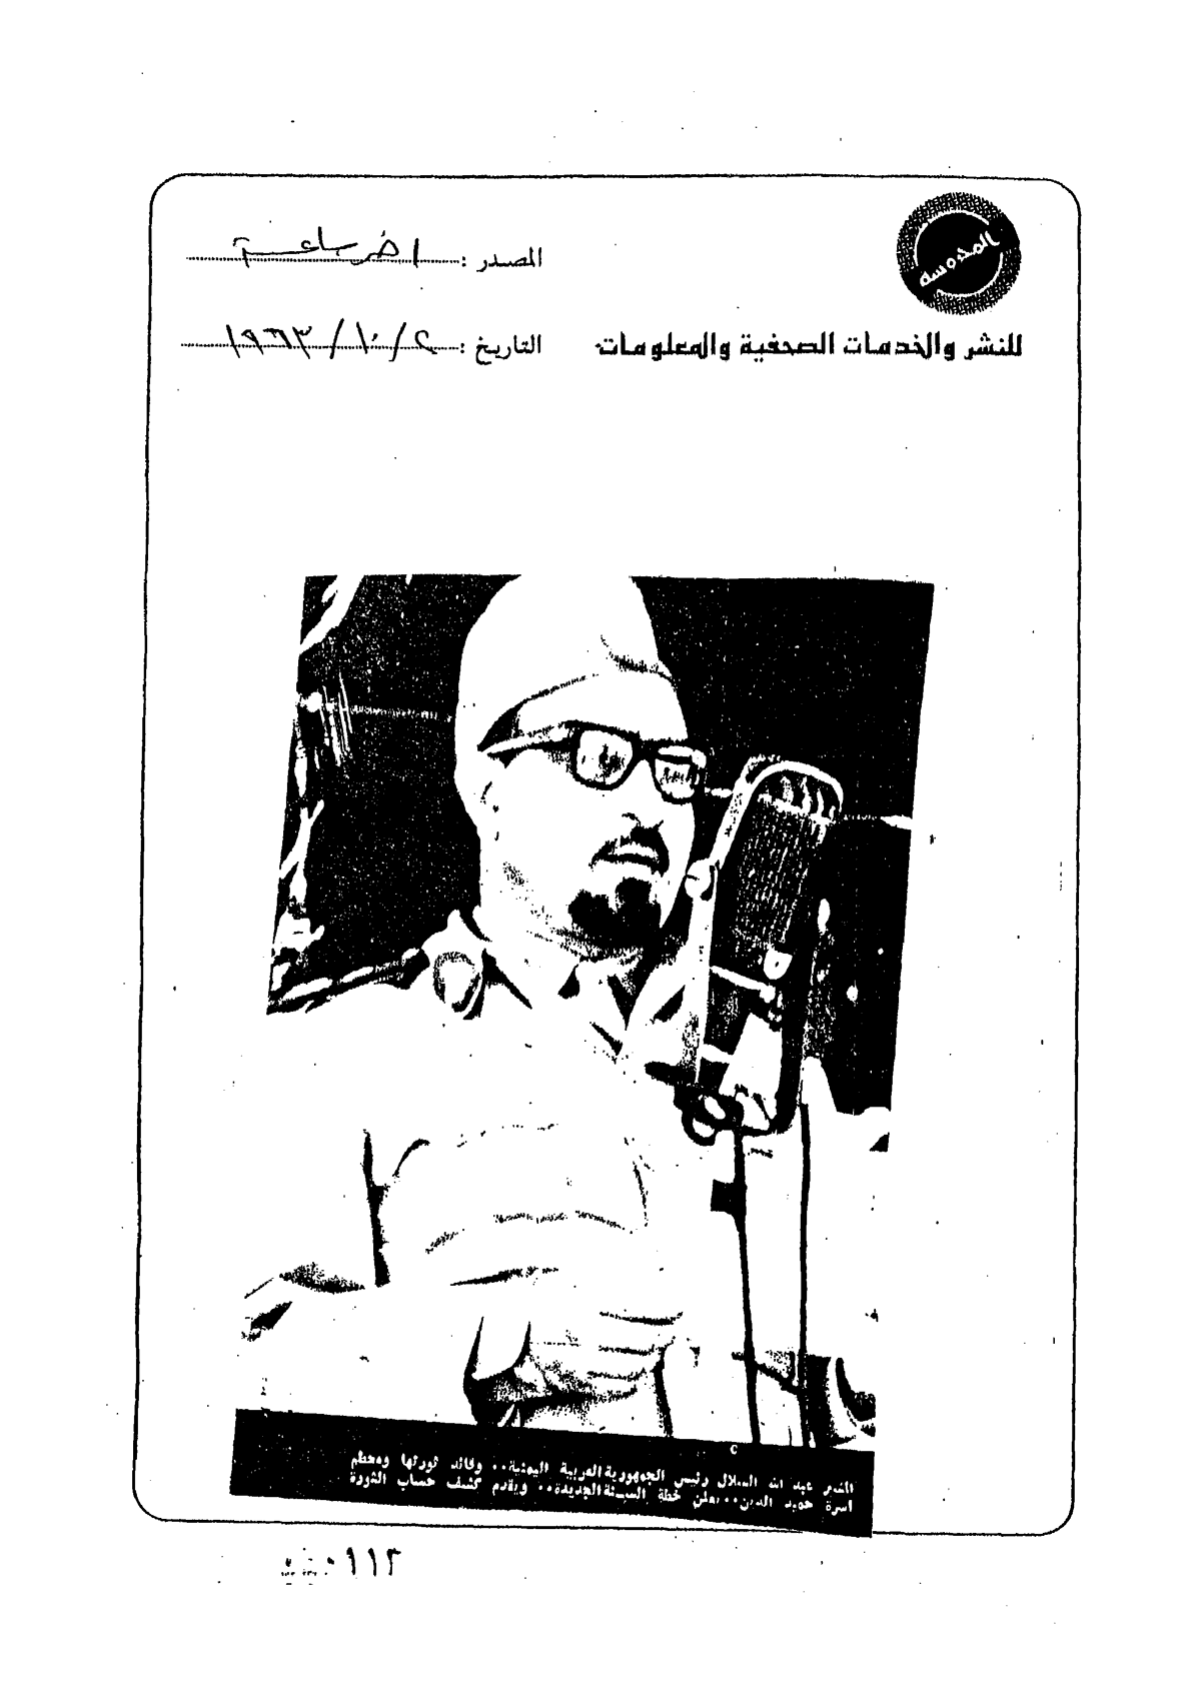 المحروسة
المصدر : اخر ساعة
للنشر والخدمات الصحفية والمعلومات
التاريخ : ٢ / ١٠ / ١٩٦٣
المشير عبد الله السلال رئيس الجمهورية العربية اليمنية .. وقائد ثورتها ومحطم
اسرة حميد الدين .. يعلن خطة السنة الجديدة .. ويقدم كشف حساب الثورة
١١٣